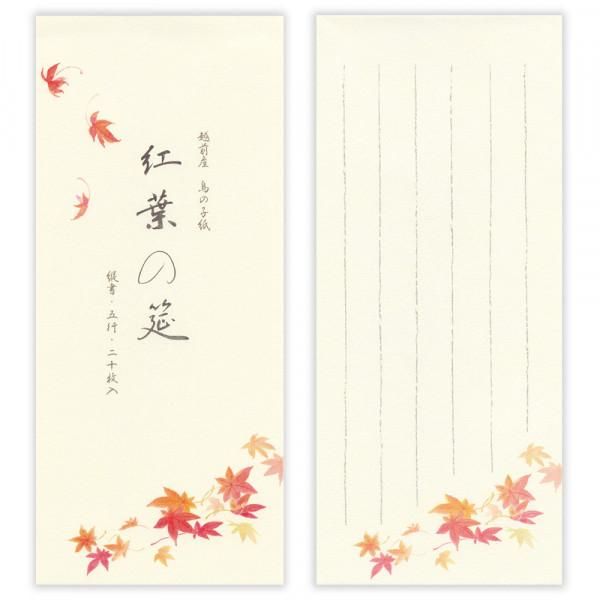 越前産 鳥の子紙
紅葉の筵
縦書・五行・二十枚入